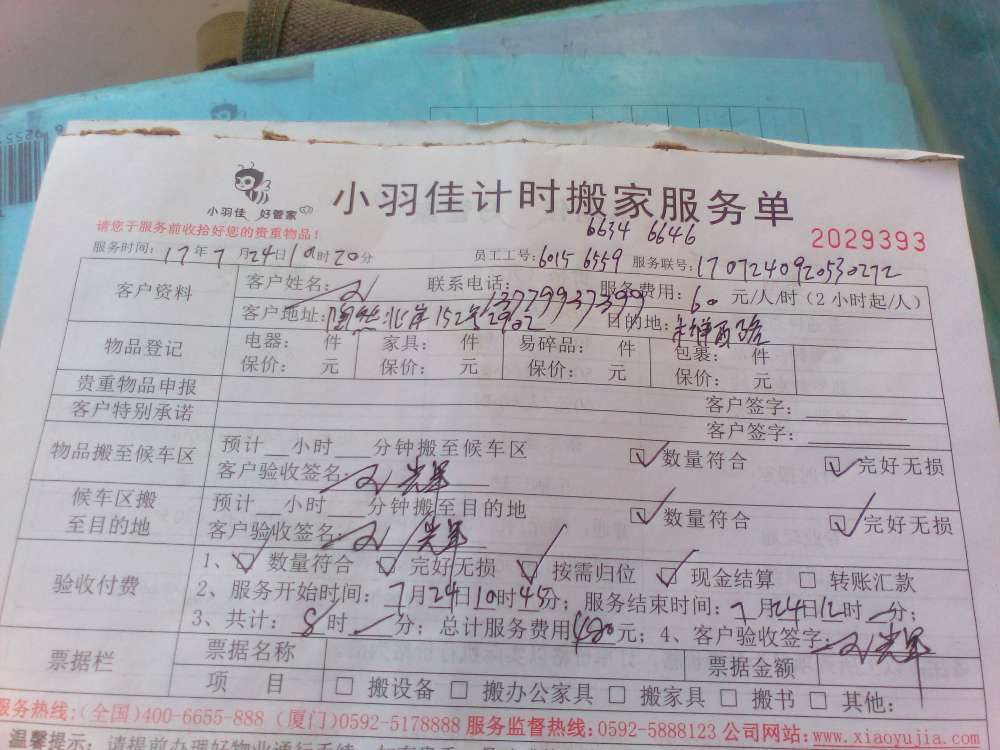 小羽佳 好管家
小羽佳计时搬家服务单
请您于服务前收拾好您的贵重物品！
6634 6646
2029393
服务时间：17年7月24日10时20分 员工工号：6015 6559 服务联号：1707240920530272
客户资料 客户姓名： 联系电话：13779937399 服务费用：60元/人/时（2小时起/人）
客户地址： 北岸152号2902 目的地：
物品登记 电器： 件 家具： 件 易碎品： 件 包裹： 件
保价： 元 保价： 元 保价： 元 保价： 元
贵重物品申报 客户签字：
客户特别承诺 客户签字：
物品搬至候车区 预计__小时__分钟搬至候车区 数量符合 完好无损
客户验收签名：
候车区搬至目的地 预计__小时__分钟搬至目的地 数量符合 完好无损
客户验收签名：
验收付费 1、数量符合 完好无损 按需归位 现金结算 转账汇款
2、服务开始时间：7月24日10时45分；服务结束时间：7月24日12时 分；
3、共计：8时 分；总计服务费用480元；4、客户验收签字：
票据栏 票据名称 票据金额
项 目 搬设备 搬办公家具 搬家具 搬书 其他：
服务热线：(全国)400-6655-888 (厦门)0592-5178888 服务监督热线：0592-5888123 公司网站：www.xiaoyujia.com
温馨提示：请提前办理好物业通行手续